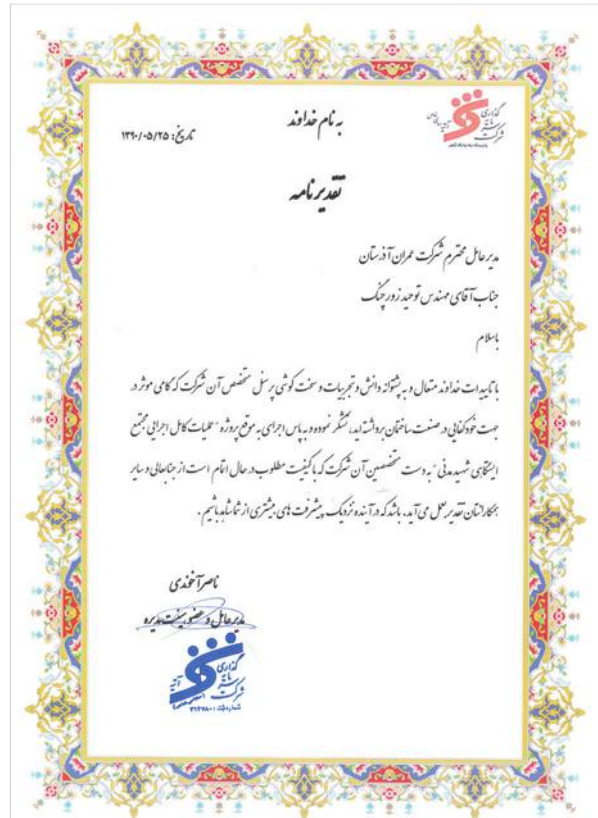 به نام خداوند
تاریخ: ۱۳۹۰/۰۵/۲۵
شرکت سرمایه گذاری
تقدیرنامه
مدیرعامل محترم شرکت عمران آذرستان
جناب آقای مهندس توحید زورچنگ
باسلام
با تاییدات خداوند متعال و به پشتوانه دانش و تجربیات و سخت کوشی پرسنل متخصص آن شرکت که گامی موثر در
جهت خودکفایی در صنعت ساختمان برداشته اید، تشکر نموده و به پاس اجرای به موقع پروژه "عملیات کامل اجرایی مجتمع
ایستگاهی شهید مدنی" به دست متخصصین آن شرکت که با کیفیت مطلوب در حال اتمام است از جنابعالی و سایر
همکارانتان تقدیر بعمل می آید. باشد که در آینده نزدیک پیشرفت های بیشتری از شما شاهد باشیم.
ناصر آخوندی
مدیرعامل و عضو هیئت مدیره
شرکت سرمایه گذاری
شماره ثبت: ۳۱۳۷۸۰